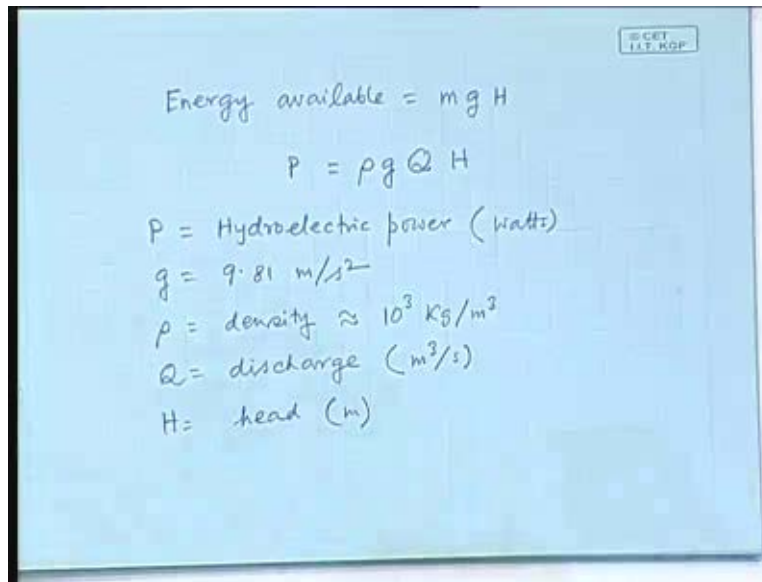 © CET
I.I.T. KGP
Energy available = m g H
P = ρ g Q H
P = Hydroelectric power (Watts)
g = 9.81 m/s²
ρ = density ≈ 10³ Kg/m³
Q = discharge (m³/s)
H = head (m)